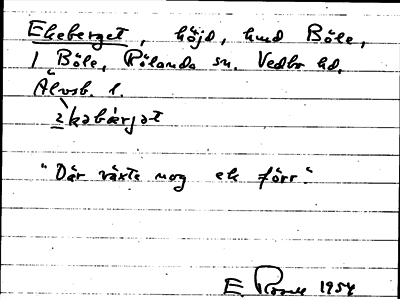 Ekeberget, höjd, hmd Böle,
1 Böle, Rölanda sn. Vedbo hd,
Älvsb. l.
2kəbærjət
"Där växte nog ek förr."
E 1954